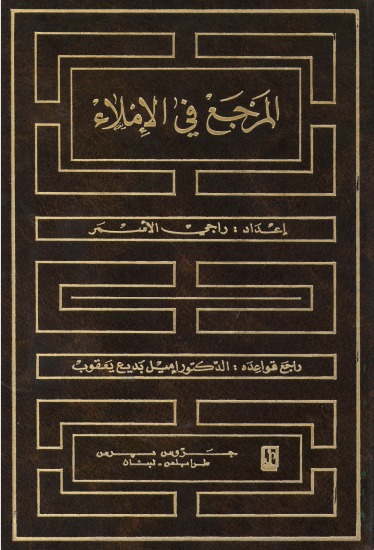 المَرْجَعُ فِي الإِمْلاءِ
إعْدَاد : راجي الأسْمَر
راجَعَ قواعِدَه : الدّكتور إميل بَديع يَعقوبْ
جرّوس برس
طرابلس - لبنان